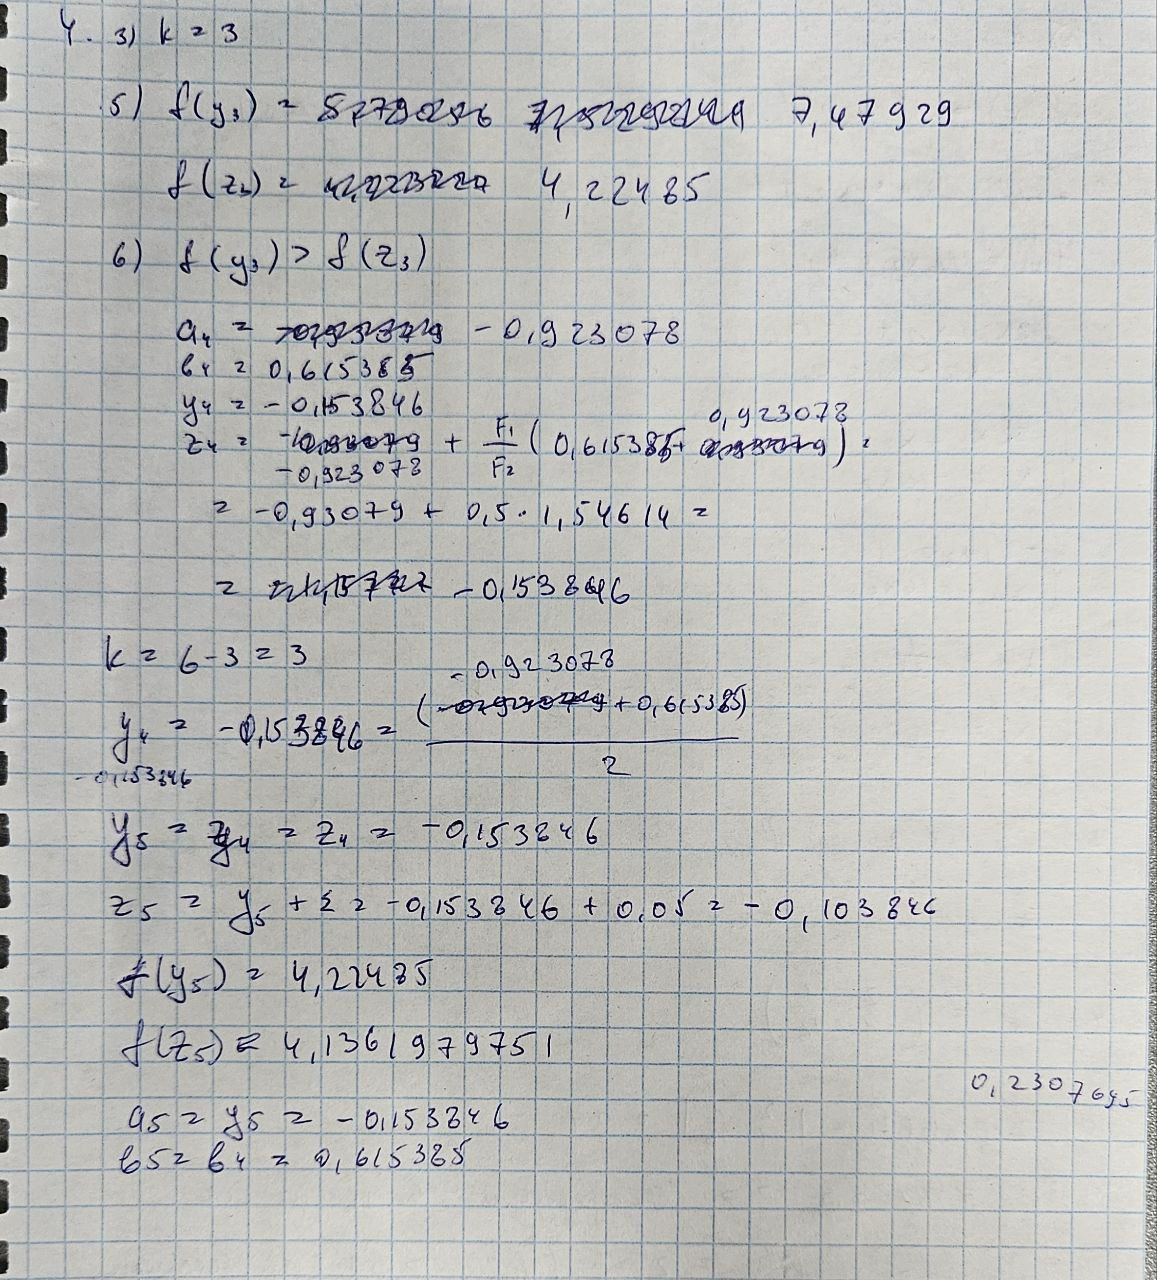 4. 3) k = 3
5) f(y₃) = 7,47929
f(z₃) = 4,22485
6) f(y₃) > f(z₃)
a₄ = -0,923078
b₄ = 0,615385
y₄ = -0,153846
0,923078
z₄ = + F₁/F₂ ( 0,615385+ ) =
-0,923078
= -0,93079 + 0,5 · 1,54614 =
= -0,153846
k = 6-3 = 3
-0,923078
y₄ = -0,153846 = ( + 0,615385)
2
-0,153846
y₅ = z₄ = -0,153846
z₅ = y₅ + ε = -0,153846 + 0,05 = -0,103846
f(y₅) = 4,22485
f(z₅) = 4,1361979751
0,2307695
a₅ = y₅ = -0,153846
b₅ = b₄ = 0,615385